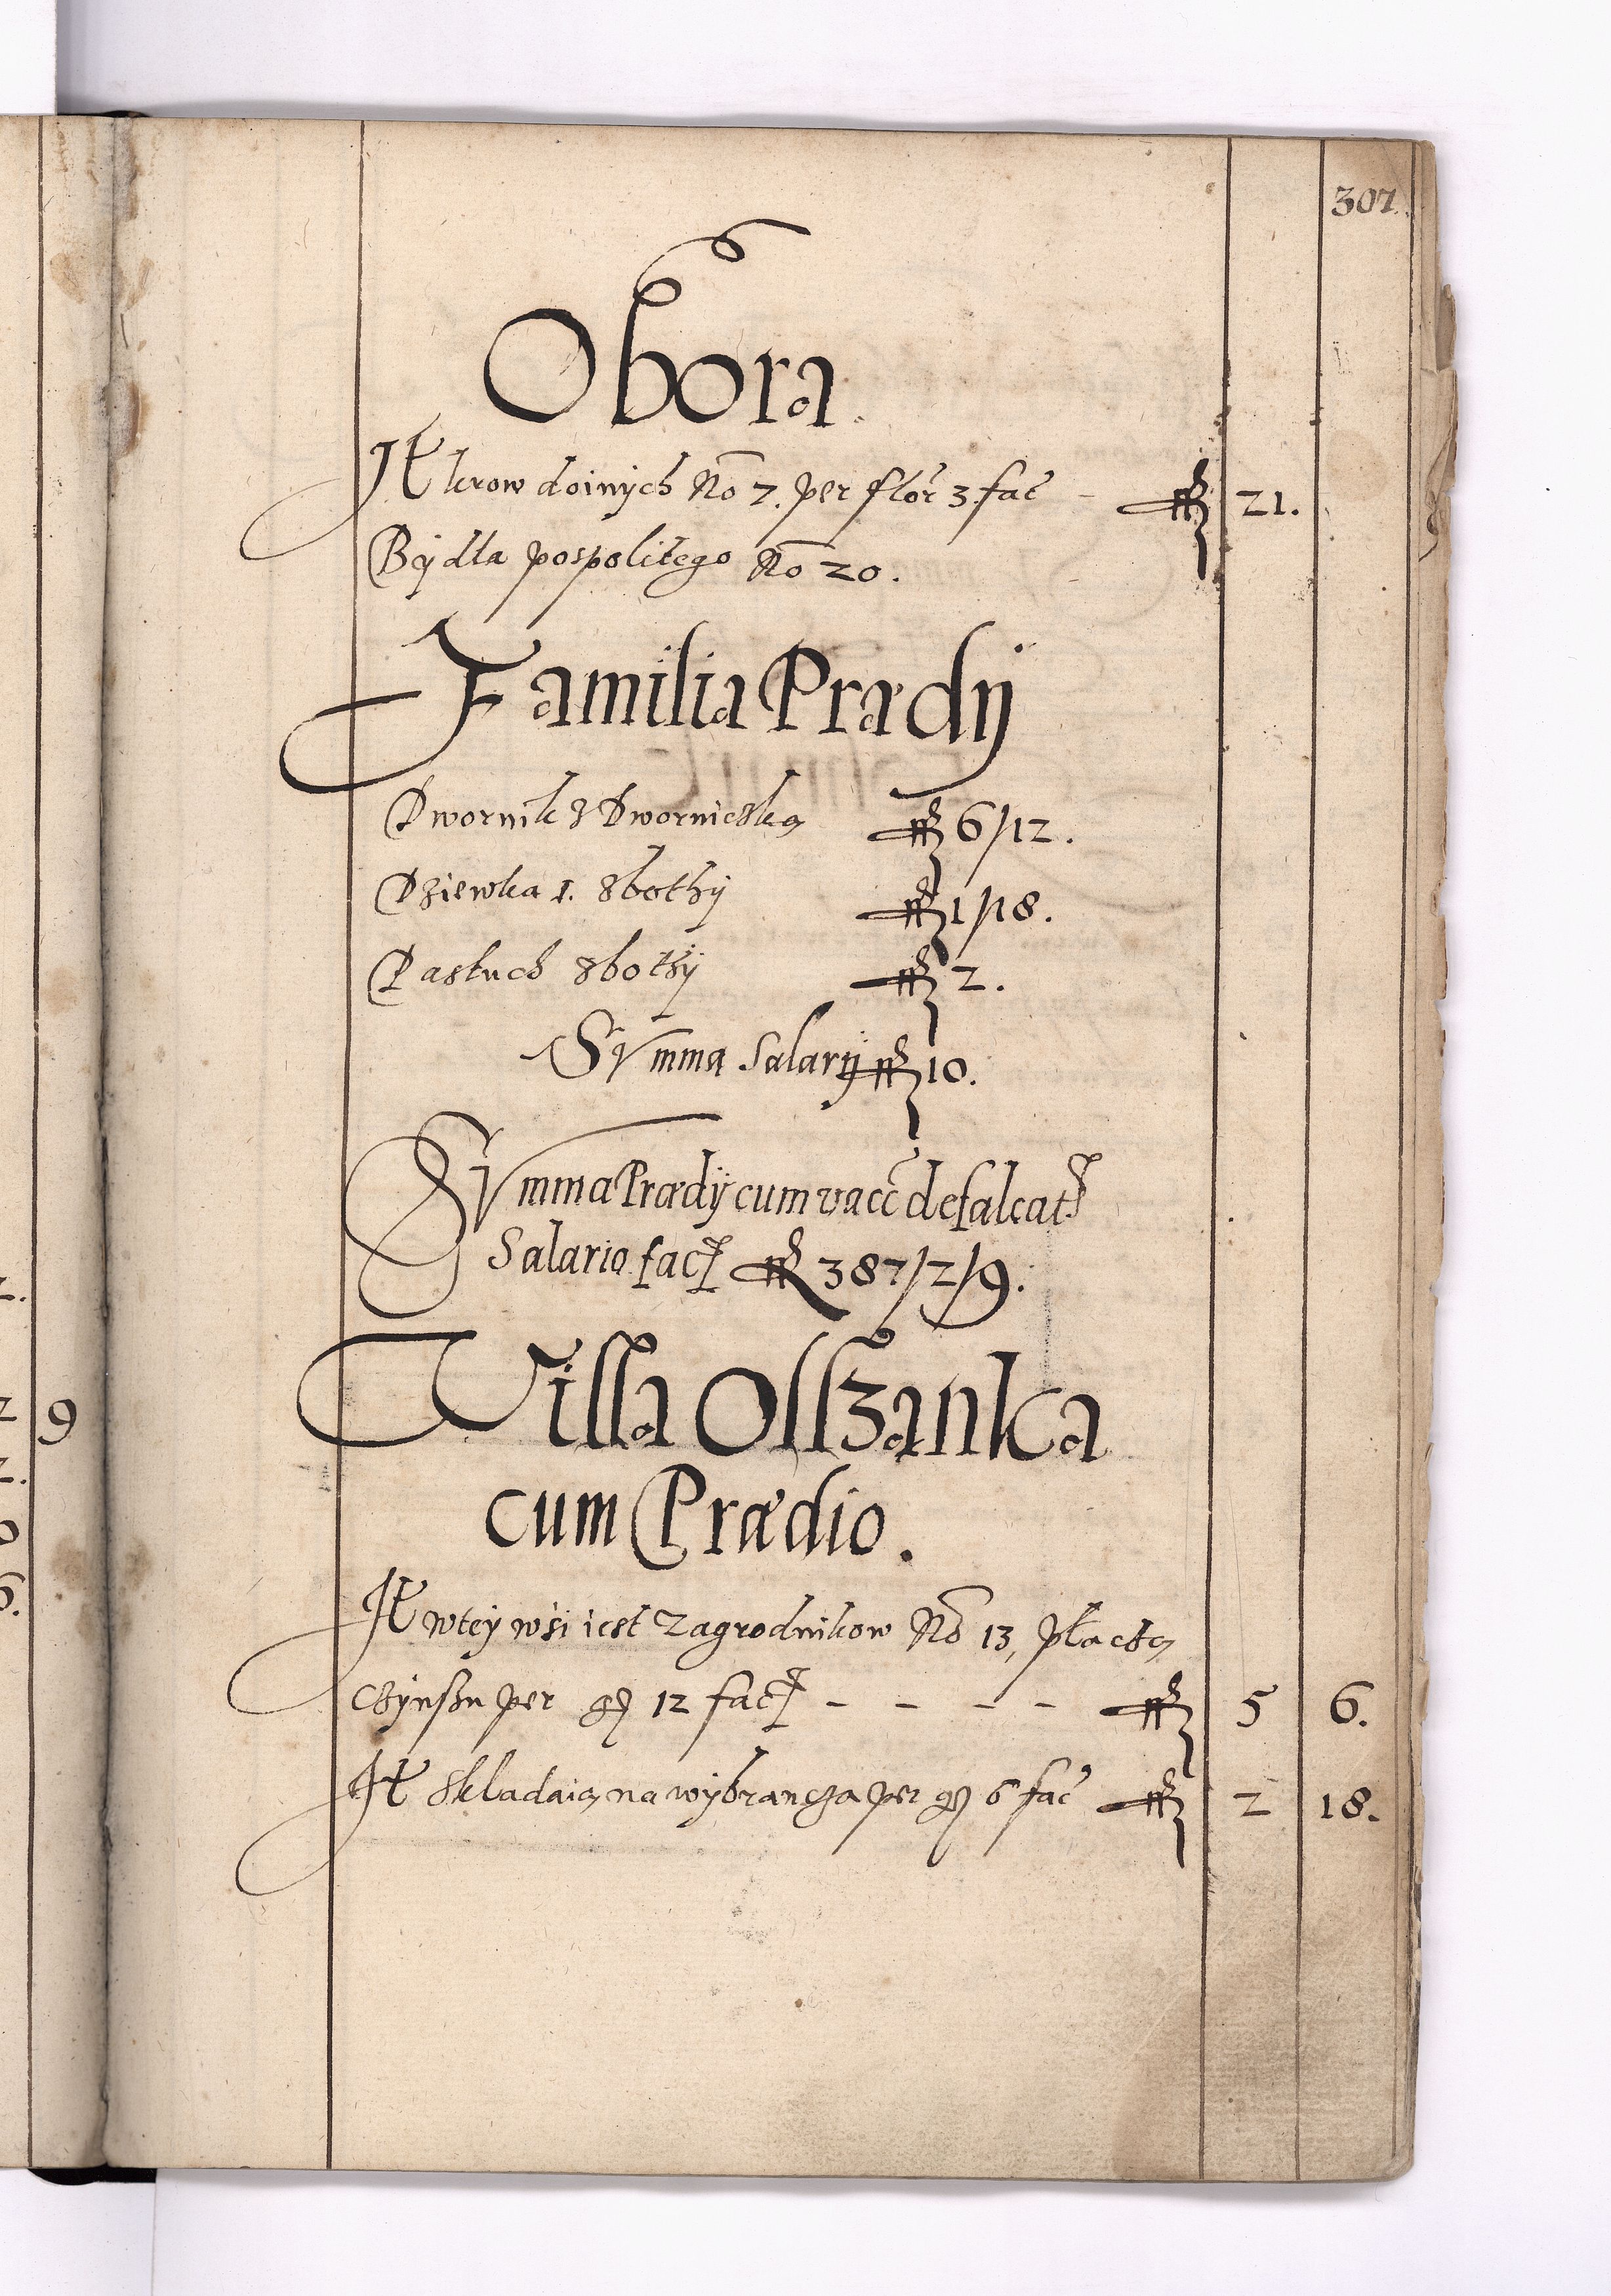 307
Obora
It krow doinych No 7. per flor 3 fac - ff 21.
Bydla pospolitego No 20.
Familia Prædij
Dwornik z Dworniczką ff 6/12.
Dziewka 1. zbothy ff 1/18.
Pastuch zbothy ff 2.
Summa Salarij ff 10.
Summa Prædij cum vacc defalcato
Salario fact ff 387/2/9.
Villa Olszanka
cum Prædio.
It wtey wsi iest Zagrodnikow No 13, płaczą
czynszu per gr 12 fact - - - - ff 5 6.
It składaią na wybrancza per gr 6 fac ff 2 18.
9